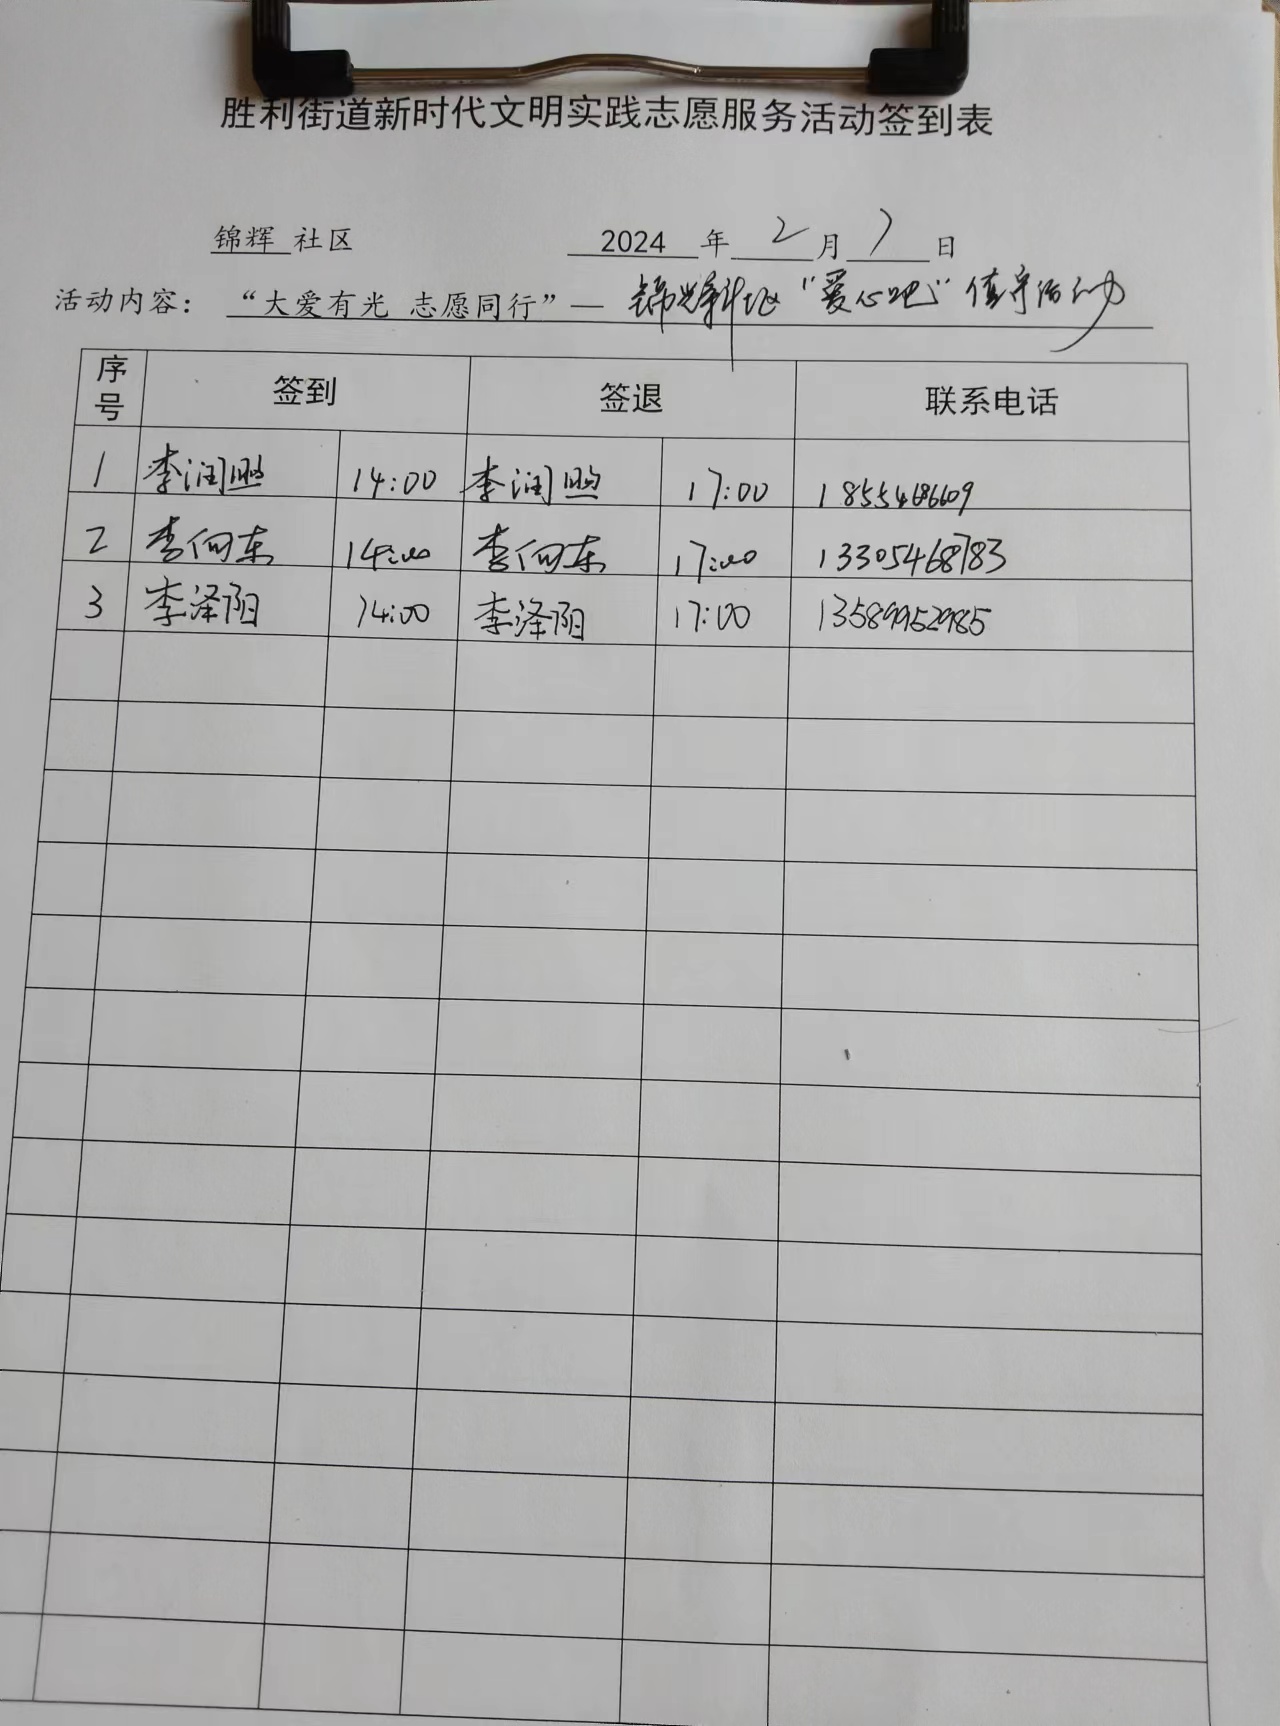 胜利街道新时代文明实践志愿服务活动签到表
锦辉 社区 2024 年 2 月 7 日
活动内容：“大爱有光 志愿同行”— 锦辉社区“爱心吧”值守活动
序号 签到 签退 联系电话
1 李润照 14:00 李润照 17:00 18554686609
2 李向东 14:00 李向东 17:00 13305468783
3 李泽阳 14:00 李泽阳 17:00 13589952985